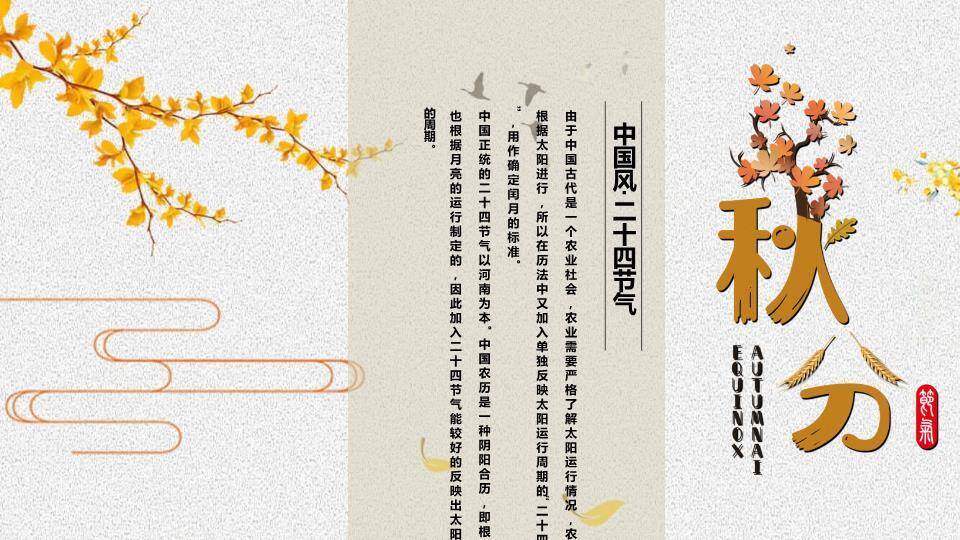 秋分
AUTUMNAI
EQUINOX
節氣
中国风·二十四节气
由于中国古代是一个农业社会，农业需要严格了解太阳运行情况，农
根据太阳进行，所以在历法中又加入单独反映太阳运行周期的“二十四
”，用作确定闰月的标准。
中国正统的二十四节气以河南为本。中国农历是一种阴阳合历，即根
也根据月亮的运行制定的，因此加入二十四节气能较好的反映出太阳
的周期。